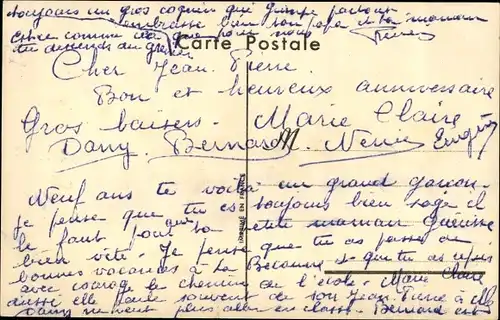 toujours un gros coquin qui grimpe partout
embrasse bien ton papa et ta maman
est ce comme ça que pour nous
tu descends du grenier
Carte Postale
Cher Jean. Pierre
Bon et heureux anniversaire
Gros baisers. Marie Claire
Dany. Bernard M. Nenie
Neuf ans te voilà un grand garçon.
je pense que tu es toujours bien sage il
le faut pour ta petite maman
bien vite. Je pense que tu as passé de
bonnes vacances à la et que tu as repris
avec courage le chemin de l'école. Marie Claire
aussi elle parle souvent de son Jean Pierre à
Dany ne veut plus aller en classe. Bernard est